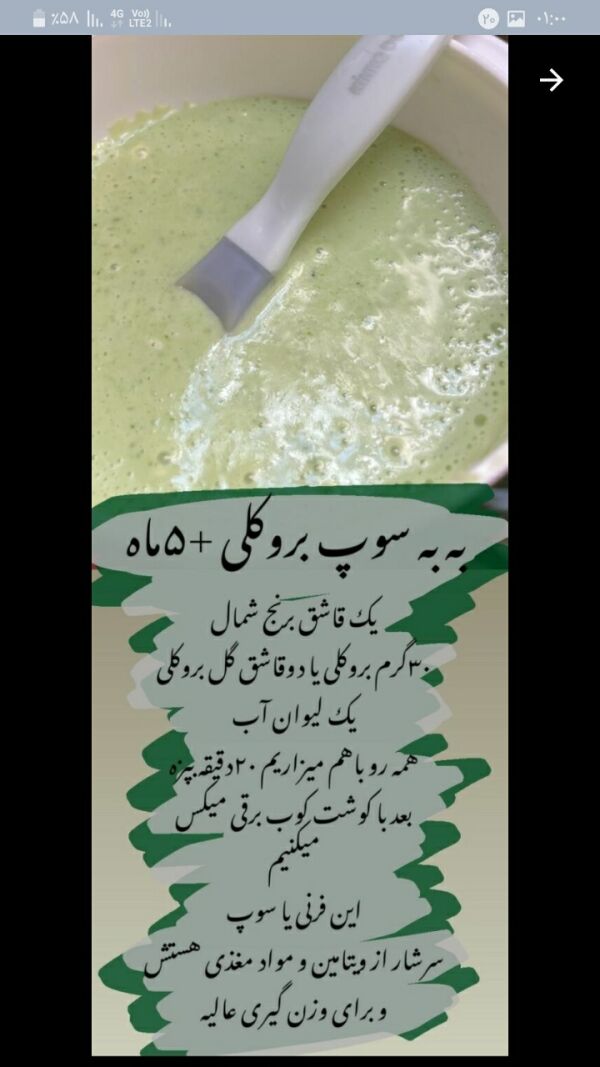 ٪۵۸ 4G Vo)) LTE2 ۲۰ ۰۱:۰۰
به به سوپ بروکلی +۵ماه
یک قاشق برنج شمال
۳۰گرم بروکلی یا دوقاشق گل بروکلی
یک لیوان آب
همه رو باهم میزاریم ۲۰دقیقه بپزه
بعد با کوشت کوب برقی میکس
میکنیم
این فرنی یا سوپ
سرشار از ویتامین و مواد مغذی هستش
و برای وزن گیری عالیه